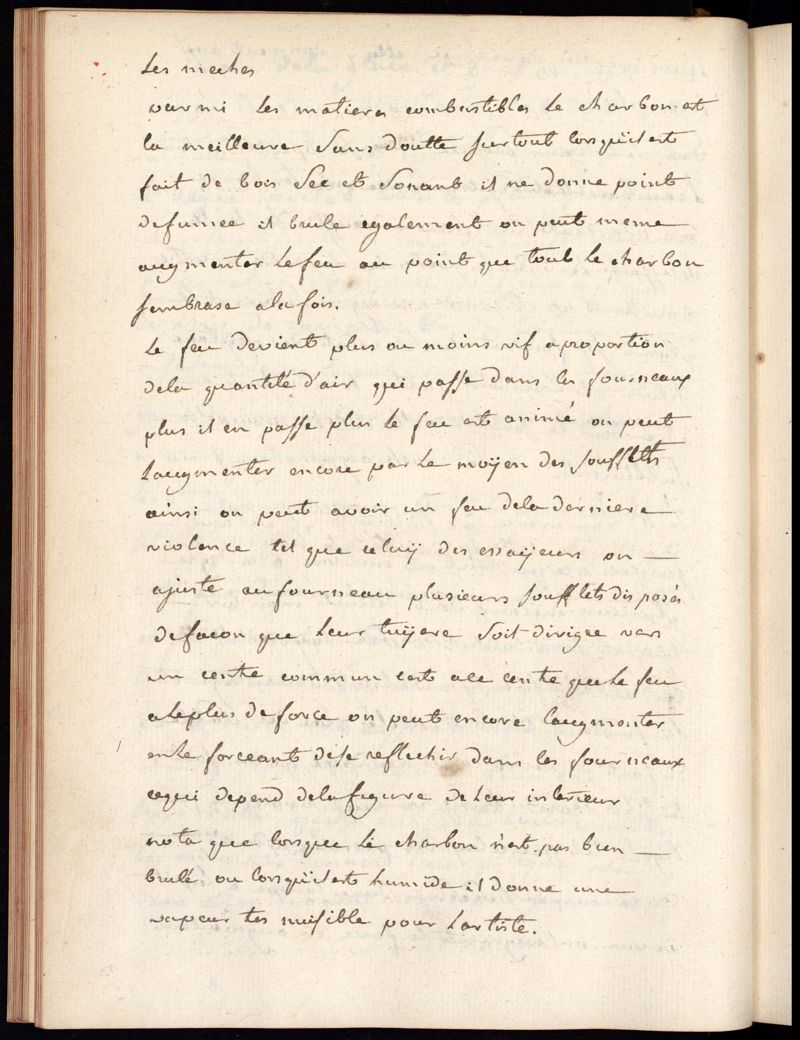 les meches
parmi les matieres combustibles le charbon est
la meilleure sans doutte surtout lorsquil est
fait de bois sec et sonant il ne donne point
defumée il brule egalement on peut meme
augmenter lefeu au point que tout le charbon
sembrase alafois.
le feu devient plus ou moins vif aproportion
dela quantité d'air qui passe dans les fourneaux
plus il en passe plus le feu est animé on peut
laugmenter encore par le moÿen des soufflets
ainsi on peut avoir un feu dela derniere
violence tel que celuÿ des essaÿeurs on —
ajuste aufourneau plusieurs soufflets disposés
defacon que leur tuÿere soit dirigee vers
un centre commun cest ace centre que le feu
aleplus deforce on peut encore laugmenter
enle forceant dese reflechir dans les fourneaux
cequi depend delafigure deleur interieur
nota que lorsque le charbon n'est pas bien —
brulé ou lorsquil est humide il donne une
vapeur tres nuisible pour lartiste.